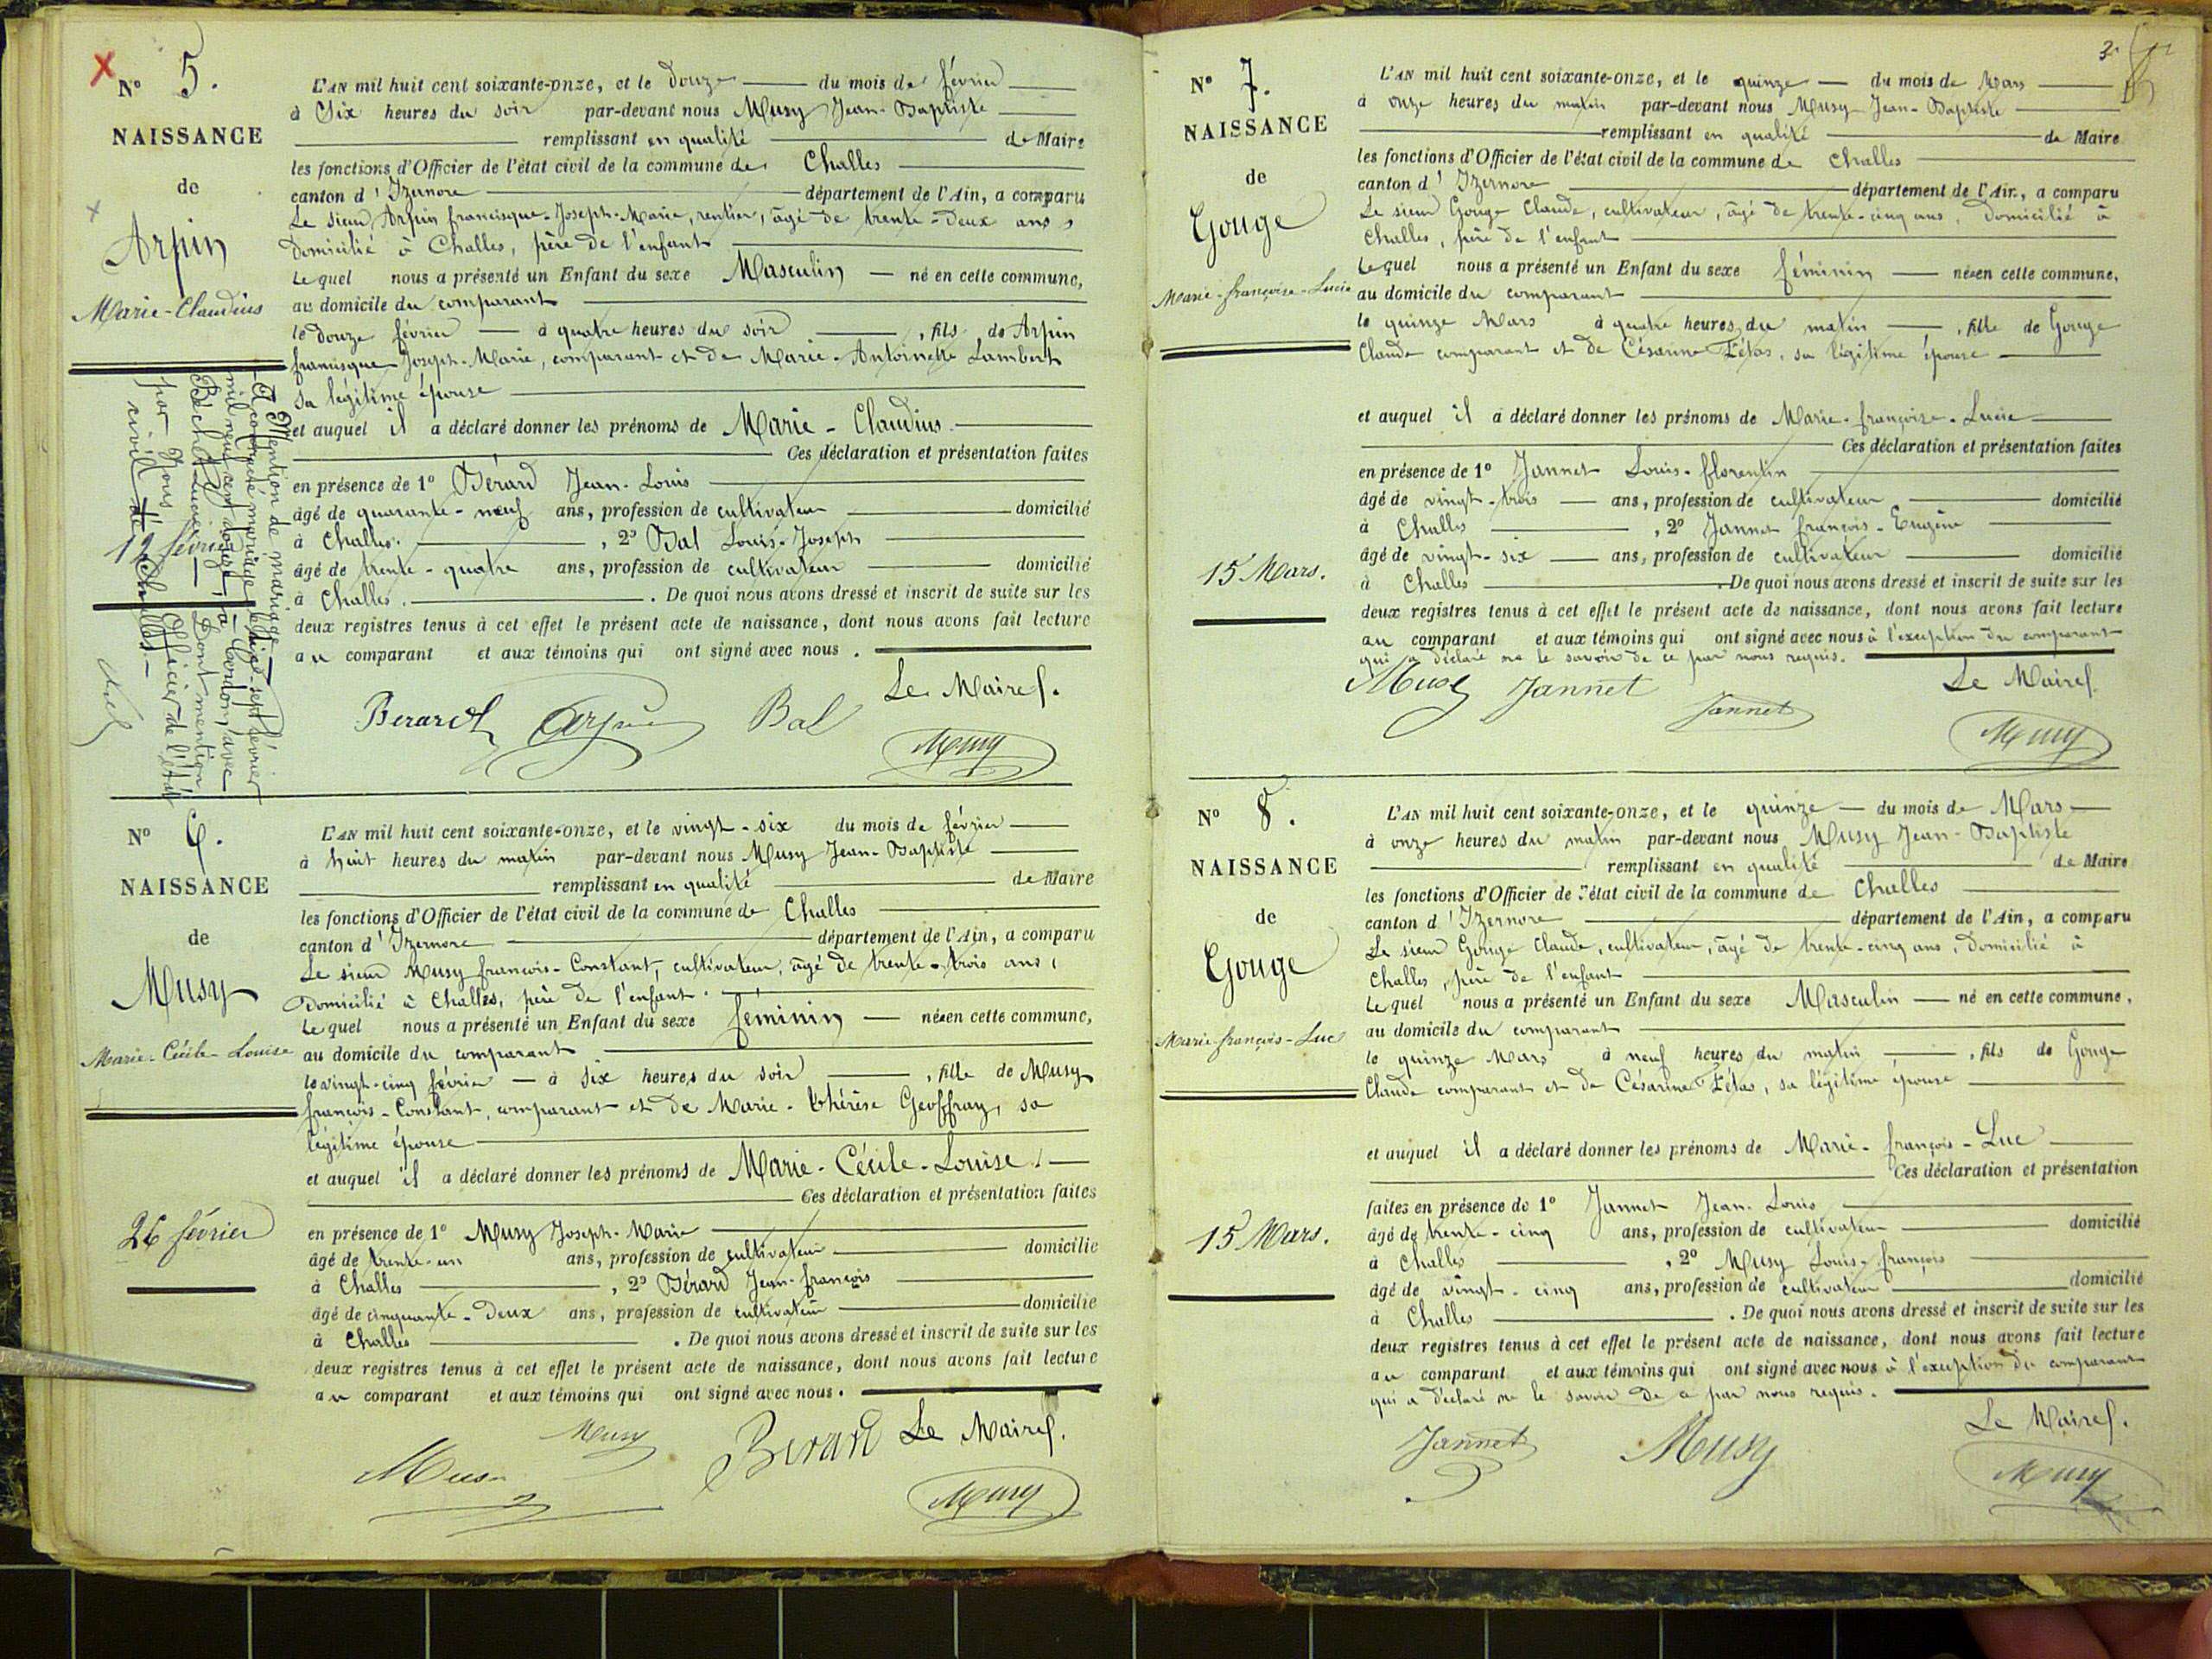 N° 5.
NAISSANCE
de
Arpin
Marie-Claudius
12 février
L'AN mil huit cent soixante-onze, et le douze du mois de février
à Six heures du soir par-devant nous Musy Jean-Baptiste
remplissant en qualité de Maire
les fonctions d'Officier de l'état civil de la commune de Challes
canton d'Izernore département de l'Ain, a comparu
Le sieur Arpin francisque-Joseph-Marie, rentier, âgé de trente-deux ans,
Domicilié à Challes, père de l'enfant
Lequel nous a présenté un Enfant du sexe Masculin né en cette commune,
au domicile du comparant
le douze février à quatre heures du soir, fils de Arpin
francisque Joseph-Marie, comparant et de Marie-Antoinette Lambert
Sa légitime épouse
et auquel il a déclaré donner les prénoms de Marie-Claudius.
Ces déclaration et présentation faites
en présence de 1° Bérard Jean-Louis
âgé de quarante-neuf ans, profession de cultivateur domicilié
à Challes. , 2° Bal Louis-Joseph
âgé de trente-quatre ans, profession de cultivateur domicilié
à Challes. . De quoi nous avons dressé et inscrit de suite sur les
deux registres tenus à cet effet le présent acte de naissance, dont nous avons fait lecture
au comparant et aux témoins qui ont signé avec nous.
Le Maire.
Berard Arpin Bal
Musy
Mention de mariage
A contracté mariage le dix-sept février
mil neuf cent à Cerdon, avec
Dont mention
par Nous Officier de l'état
civil de Challes
N° 6.
NAISSANCE
de
Musy
Marie-Cécile-Louise
26 février
L'AN mil huit cent soixante-onze, et le vingt-six du mois de février
à huit heures du matin par-devant nous Musy Jean-Baptiste
remplissant en qualité de Maire
les fonctions d'Officier de l'état civil de la commune de Challes
canton d'Izernore département de l'Ain, a comparu
Le sieur Musy françois-Constant, cultivateur, âgé de trente-trois ans,
Domicilié à Challes, père de l'enfant.
Lequel nous a présenté un Enfant du sexe féminin née en cette commune,
au domicile du comparant
le vingt-cinq février à six heures du soir, fille de Musy
françois-Constant, comparant et de Marie-thérèse Geoffray, sa
légitime épouse
et auquel il a déclaré donner les prénoms de Marie-Cécile-Louise.
Ces déclaration et présentation faites
en présence de 1° Musy Joseph-Marie
âgé de trente-un ans, profession de cultivateur domicilié
à Challes , 2° Bérard Jean-françois
âgé de cinquante-deux ans, profession de cultivateur domicilié
à Challes . De quoi nous avons dressé et inscrit de suite sur les
deux registres tenus à cet effet le présent acte de naissance, dont nous avons fait lecture
au comparant et aux témoins qui ont signé avec nous.
Musy Berard Le Maire.
Musy
Musy
3
N° 7.
NAISSANCE
de
Gouge
Marie-françoise-Lucie
15 Mars.
L'AN mil huit cent soixante-onze, et le quinze du mois de Mars
à onze heures du matin par-devant nous Musy Jean-Baptiste
remplissant en qualité de Maire
les fonctions d'Officier de l'état civil de la commune de Challes
canton d'Izernore département de l'Ain, a comparu
Le sieur Gouge Claude, cultivateur, âgé de trente-cinq ans, Domicilié à
Challes, père de l'enfant
Lequel nous a présenté un Enfant du sexe féminin née en cette commune,
au domicile du comparant
le quinze Mars à quatre heures du matin, fille de Gouge
Claude comparant et de Césarine Létas, sa légitime épouse
et auquel il a déclaré donner les prénoms de Marie-françoise-Lucie
Ces déclaration et présentation faites
en présence de 1° Jannet Louis-florentin
âgé de vingt-trois ans, profession de cultivateur domicilié
à Challes , 2° Jannet françois-Eugène
âgé de vingt-six ans, profession de cultivateur domicilié
à Challes . De quoi nous avons dressé et inscrit de suite sur les
deux registres tenus à cet effet le présent acte de naissance, dont nous avons fait lecture
au comparant et aux témoins qui ont signé avec nous à l'exception du comparant
qui a déclaré ne le savoir de ce par nous requis.
Musy Jannet Jannet Le Maire.
Musy
N° 8.
NAISSANCE
de
Gouge
Marie-françois-Luc
15 Mars.
L'AN mil huit cent soixante-onze, et le quinze du mois de Mars
à onze heures du matin par-devant nous Musy Jean-Baptiste
remplissant en qualité de Maire
les fonctions d'Officier de l'état civil de la commune de Challes
canton d'Izernore département de l'Ain, a comparu
Le sieur Gouge Claude, cultivateur, âgé de trente-cinq ans, Domicilié à
Challes, père de l'enfant
Lequel nous a présenté un Enfant du sexe Masculin né en cette commune,
au domicile du comparant
le quinze Mars à neuf heures du matin, fils de Gouge
Claude comparant et de Césarine Létas, sa légitime épouse
et auquel il a déclaré donner les prénoms de Marie-françois-Luc
Ces déclaration et présentation
faites en présence de 1° Jannet Jean-Louis
âgé de trente-cinq ans, profession de cultivateur domicilié
à Challes , 2° Musy Louis-françois
âgé de vingt-cinq ans, profession de cultivateur domicilié
à Challes . De quoi nous avons dressé et inscrit de suite sur les
deux registres tenus à cet effet le présent acte de naissance, dont nous avons fait lecture
au comparant et aux témoins qui ont signé avec nous à l'exception du comparant
qui a déclaré ne le savoir de ce par nous requis.
Jannet Musy Le Maire.
Musy